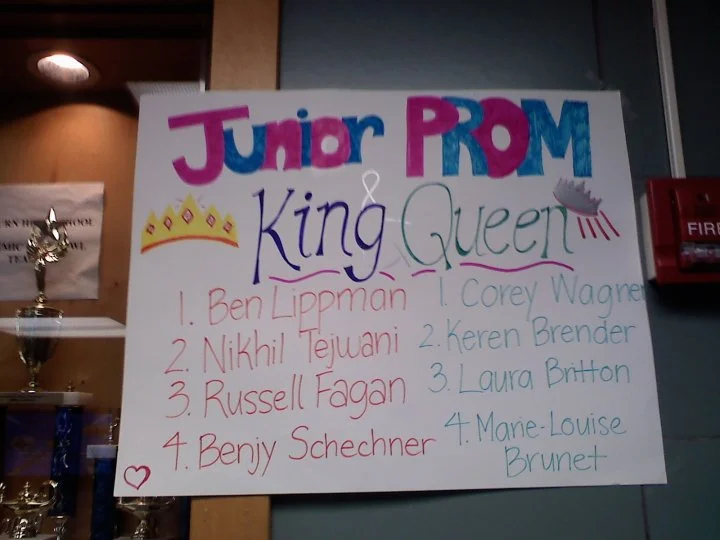 JUNIOR PROM
King & Queen
1. Ben Lippman
2. Nikhil Tejwani
3. Russell Fagan
4. Benjy Schechner
1. Corey Wagner
2. Keren Brender
3. Laura Britton
4. Marie-Louise
Brunet
FIRE
SCHOOL